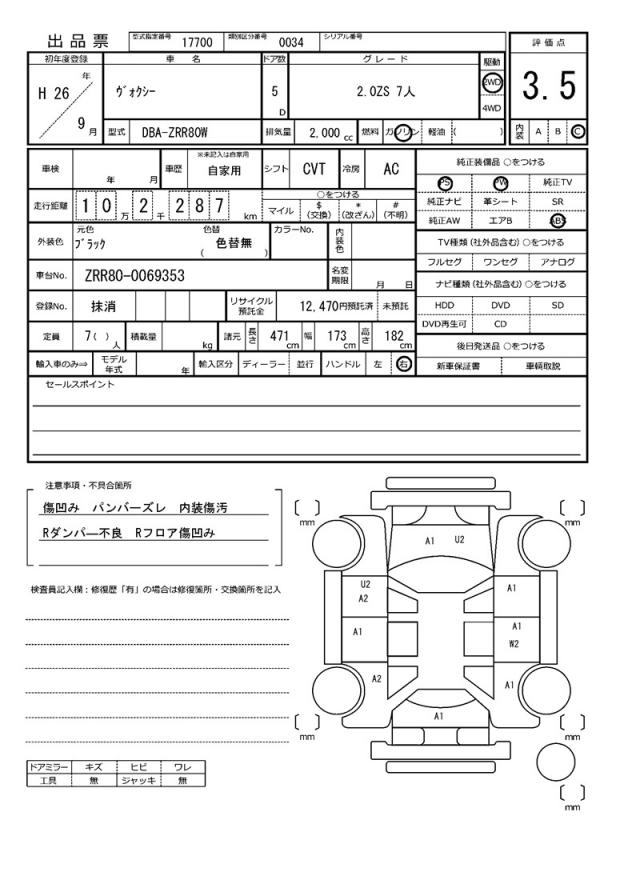 出品票 型式指定番号 17700 類別区分番号 0034 シリアル番号
評価点
3.5
内装 A B C
初年度登録 車名 ドア数 グレード 駆動
H 26 年 9 月 ヴォクシー 5 D 2.0ZS 7人 2WD
4WD
型式 DBA-ZRR80W 排気量 2,000 cc 燃料 ガソリン 軽油 ( )
車検 年 月 車歴 ※未記入は自家用 自家用 シフト CVT 冷房 AC
走行距離 10万2千287 km
○をつける
マイル $(交換) *(改ざん) #(不明)
外装色 元色 ブラック 色替 ( 色替無 ) カラーNo. 内装色
車台No. ZRR80-0069353 名変期限 月 日
登録No. 抹消 リサイクル預託金 12,470円預託済 未預託
定員 7( )人 積載量 kg 諸元 長さ 471 cm 幅 173 cm 高さ 182 cm
輸入車のみ⇒ モデル年式 年 輸入区分 ディーラー 並行 ハンドル 左 右
純正装備品 ○をつける
PS PW 純正TV
純正ナビ 革シート SR
純正AW エアB ABS
TV種類(社外品含む)○をつける
フルセグ ワンセグ アナログ
ナビ種類(社外品含む)○をつける
HDD DVD SD
DVD再生可 CD
後日発送品 ○をつける
新車保証書 車輌取説
セールスポイント
注意事項・不具合箇所
傷凹み バンパーズレ 内装傷汚
Rダンパ―不良 Rフロア傷凹み
検査員記入欄:修復歴「有」の場合は修復箇所・交換箇所を記入
ドアミラー キズ ヒビ ワレ
工具 無 ジャッキ 無
[ ] mm [ ] mm
A1 U2
U2
A2
A1
A1
A1
W2
A2
A1
A1
[ ] mm [ ] mm
[ ] mm